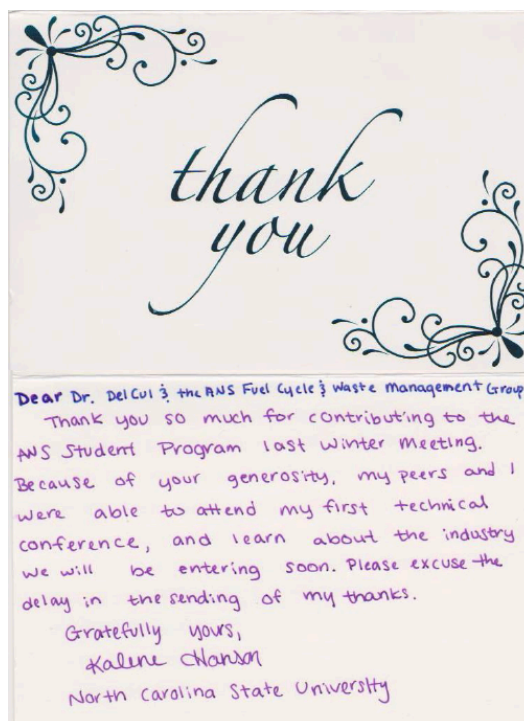 thank
you
Dear Dr. Del Cul & the ANS Fuel Cycle & Waste Management Group
Thank you so much for contributing to the
ANS Student Program last Winter Meeting.
Because of your generosity, my peers and I
were able to attend my first technical
conference, and learn about the industry
we will be entering soon. Please excuse the
delay in the sending of my thanks.
Gratefully yours,
Kalene Hanson
North Carolina State University